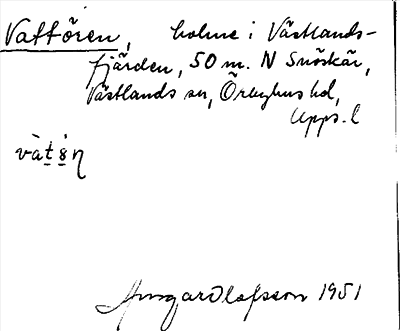 Vattören, holme i Västlands-
fjärden, 50 m. N Snöskär,
Västlands sn, Örbyhus hd,
Upps. l
Ingar Olofsson 1951